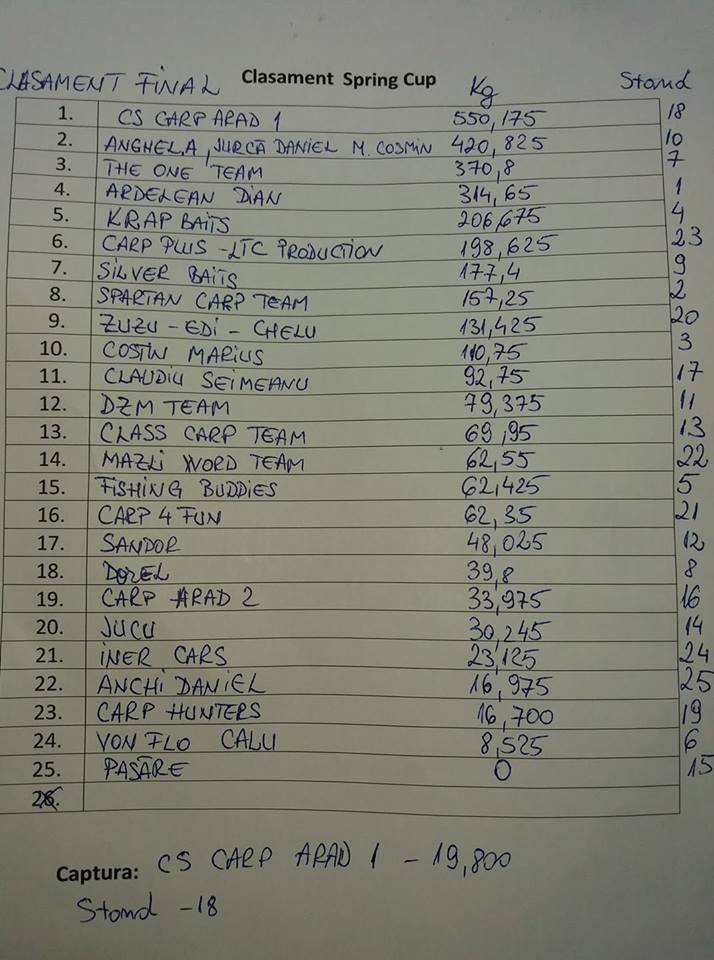 CLASAMENT FINAL Clasament Spring Cup Kg Stand
1. CS CARP ARAD 1 550,175 18
2. ANGHEL.A, JURCĂ DANIEL M. COSMIN 420,825 10
3. THE ONE TEAM 370,8 7
4. ARDELEAN DIAN 314,65 1
5. KRAP BAITS 206,675 4
6. CARP PLUS - LTC PRODUCTION 198,625 23
7. SILVER BAITS 177,4 9
8. SPARTAN CARP TEAM 157,25 2
9. ZUZU - EDI - CHELU 131,425 20
10. COSTIN MARIUS 110,75 3
11. CLAUDIU SEIMEANU 92,75 17
12. DZM TEAM 79,375 11
13. CLASS CARP TEAM 69,95 13
14. MAZLI WORD TEAM 62,55 22
15. FISHING BUDDIES 62,425 5
16. CARP 4 FUN 62,35 21
17. SANDOR 48,025 12
18. DOREL 39,8 8
19. CARP ARAD 2 33,975 16
20. JUCU 30,245 14
21. INER CARS 23,125 24
22. ANCHI DANIEL 16,975 25
23. CARP HUNTERS 16,700 19
24. VON FLO CALU 8,525 6
25. PASĂRE 0 15
26.
Captura: CS CARP ARAD 1 - 19,800
Stand - 18